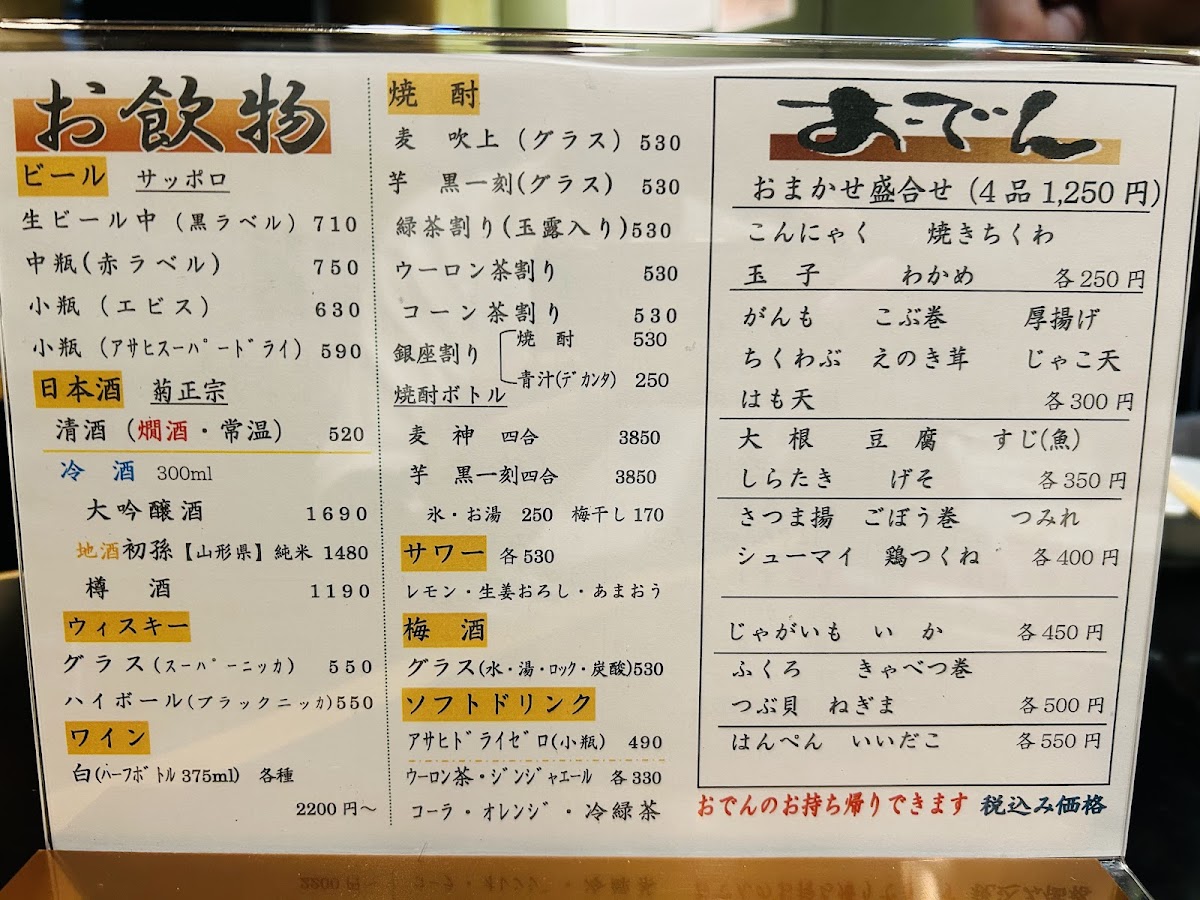 お飲物
ビール サッポロ
生ビール中 (黒ラベル) 710
中瓶(赤ラベル) 750
小瓶 (エビス) 630
小瓶 (アサヒスーパードライ) 590
日本酒 菊正宗
清酒 (燗酒・常温) 520
冷 酒 300ml
大吟醸酒 1690
地酒初孫【山形県】純米 1480
樽 酒 1190
ウィスキー
グラス(スーパーニッカ) 550
ハイボール(ブラックニッカ)550
ワイン
白(ハーフボトル375ml) 各種
2200円〜
焼 酎
麦 吹上 (グラス) 530
芋 黒一刻(グラス) 530
緑茶割り(玉露入り)530
ウーロン茶割り 530
コーン茶割り 530
銀座割り 焼 酎 530
青汁(デカンタ) 250
焼酎ボトル
麦 神 四合 3850
芋 黒一刻四合 3850
氷・お湯 250 梅干し170
サワー 各530
レモン・生姜おろし・あまおう
梅 酒
グラス(水・湯・ロック・炭酸)530
ソフトドリンク
アサヒドライゼロ(小瓶) 490
ウーロン茶・ジンジャエール 各330
コーラ・オレンジ・冷緑茶
おでん
おまかせ盛合せ (4品1,250円)
こんにゃく 焼きちくわ
玉 子 わかめ 各250円
がんも こぶ巻 厚揚げ
ちくわぶ えのき茸 じゃこ天
はも天 各300円
大 根 豆 腐 すじ(魚)
しらたき げそ 各350円
さつま揚 ごぼう巻 つみれ
シューマイ 鶏つくね 各400円
じゃがいも い か 各450円
ふくろ きゃべつ巻
つぶ貝 ねぎま 各500円
はんぺん いいだこ 各550円
おでんのお持ち帰りできます 税込み価格